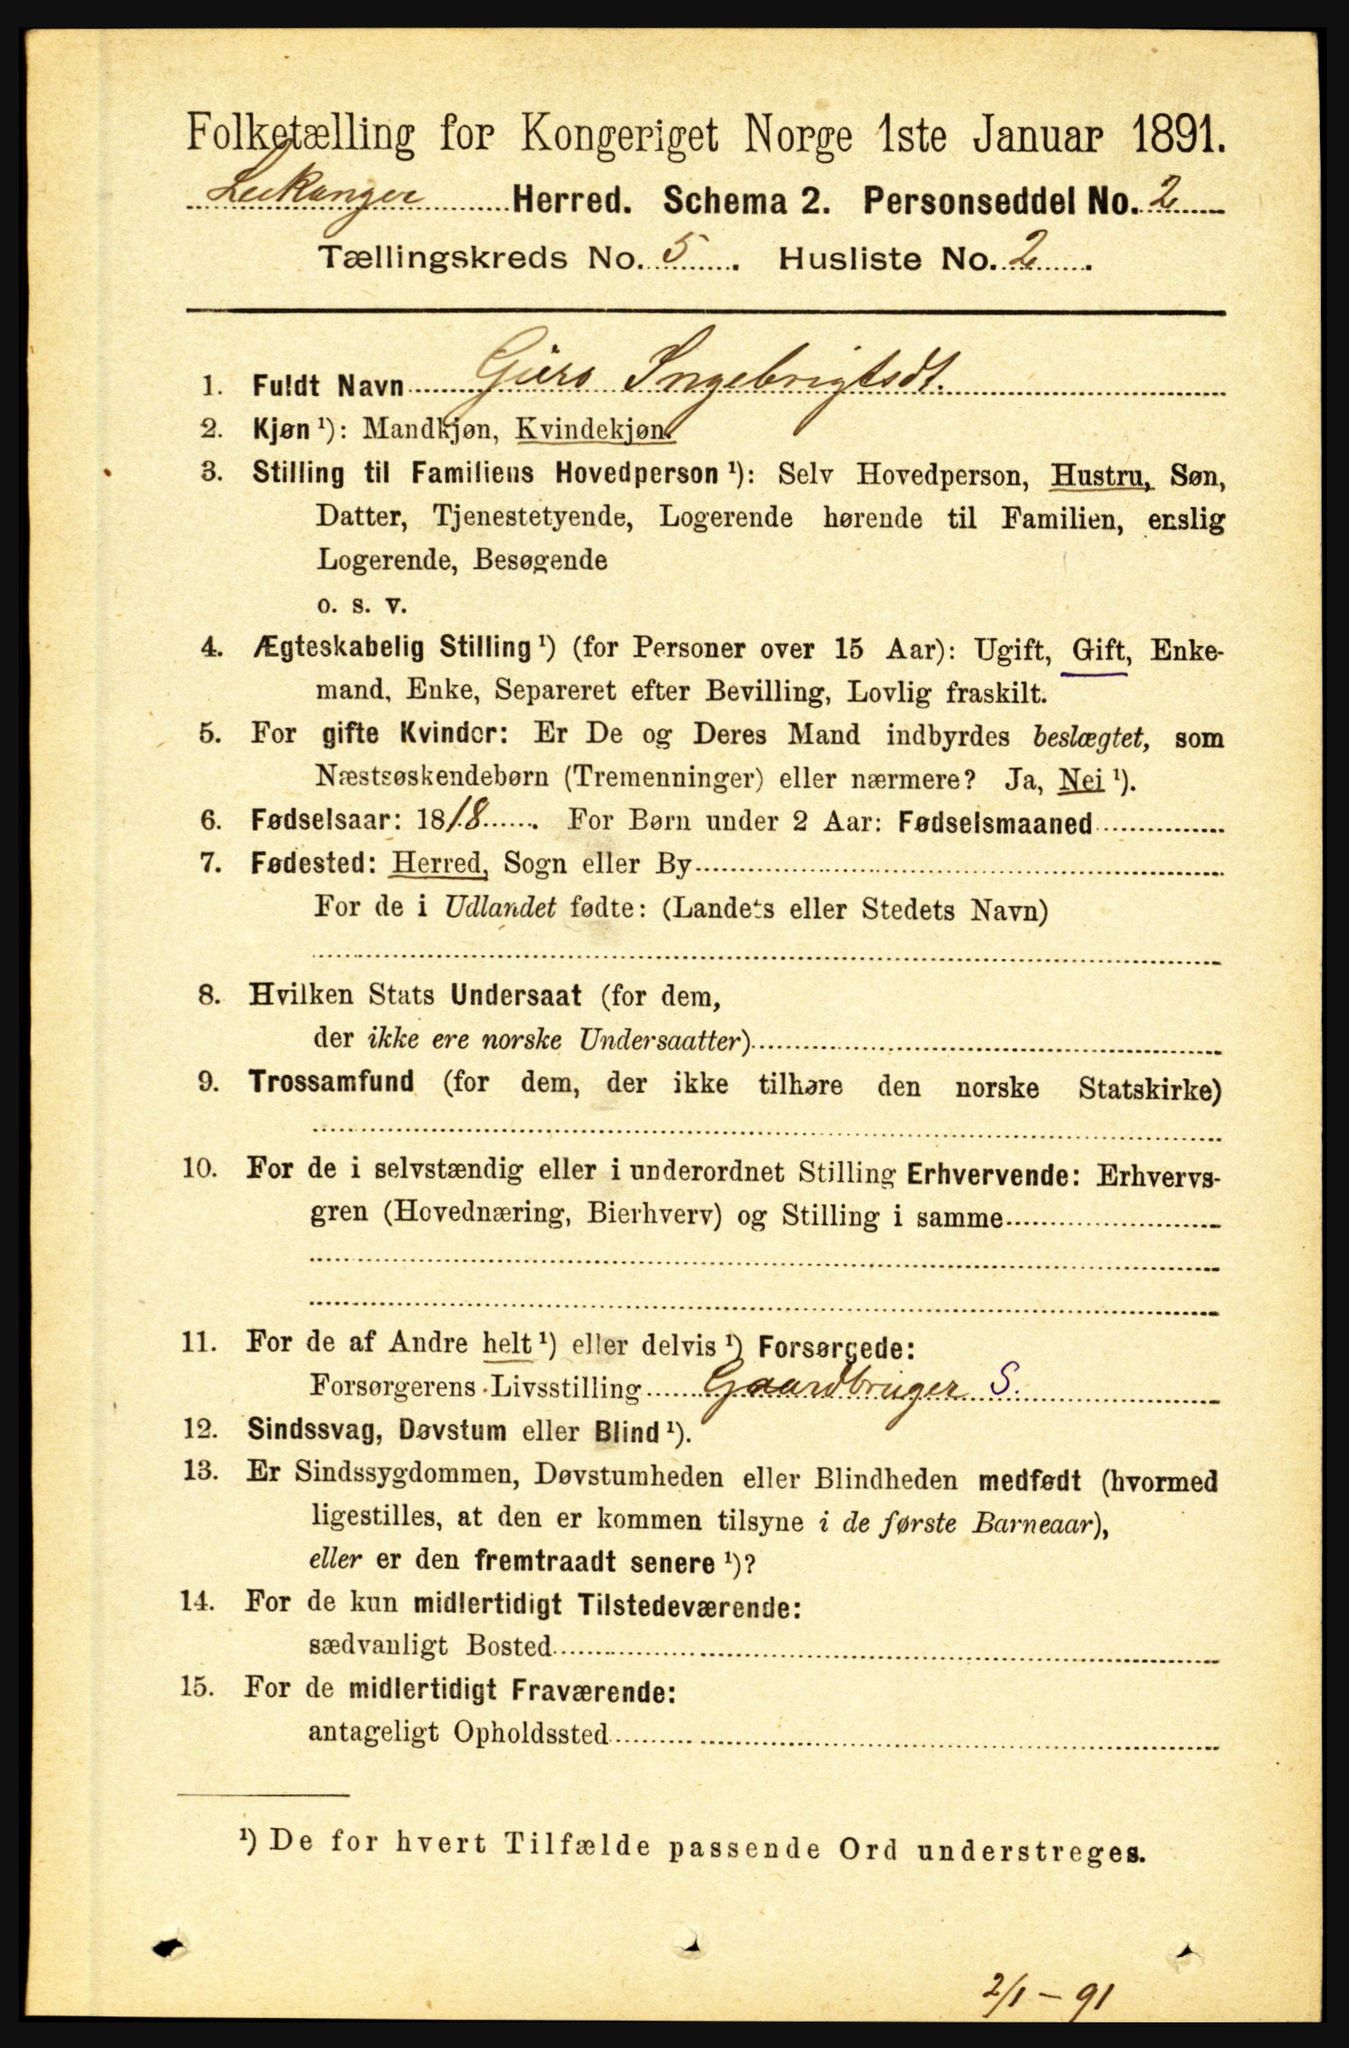 Folketælling for Kongeriget Norge 1ste Januar 1891.
Leikanger Herred. Schema 2. Personseddel No. 2
Tællingskreds No. 5. Husliste No. 2.
1. Fuldt Navn Guro Ingebrigtsdt.
2. Kjøn ¹): Mandkjøn, Kvindekjøn.
3. Stilling til Familiens Hovedperson ¹): Selv Hovedperson, Hustru, Søn,
Datter, Tjenestetyende, Logerende hørende til Familien, enslig
Logerende, Besøgende
o. s. v.
4. Ægteskabelig Stilling ¹) (for Personer over 15 Aar): Ugift, Gift, Enke-
mand, Enke, Separeret efter Bevilling, Lovlig fraskilt.
5. For gifte Kvinder: Er De og Deres Mand indbyrdes beslægtet, som
Næstsøskendebørn (Tremenninger) eller nærmere? Ja, Nei ¹).
6. Fødselsaar: 1818. For Børn under 2 Aar: Fødselsmaaned
7. Fødested: Herred, Sogn eller By
For de i Udlandet fødte: (Landets eller Stedets Navn)
8. Hvilken Stats Undersaat (for dem,
der ikke ere norske Undersaatter)
9. Trossamfund (for dem, der ikke tilhøre den norske Statskirke)
10. For de i selvstændig eller i underordnet Stilling Erhvervende: Erhvervs-
gren (Hovednæring, Bierhverv) og Stilling i samme
11. For de af Andre helt ¹) eller delvis ¹) Forsørgede:
Forsørgerens Livsstilling Gaardbruger S.
12. Sindssvag, Døvstum eller Blind ¹).
13. Er Sindssygdommen, Døvstumheden eller Blindheden medfødt (hvormed
ligestilles, at den er kommen tilsyne i de første Barneaar),
eller er den fremtraadt senere ¹)?
14. For de kun midlertidigt Tilstedeværende:
sædvanligt Bosted
15. For de midlertidigt Fraværende:
antageligt Opholdssted
¹) De for hvert Tilfælde passende Ord understreges.
2/1 – 91